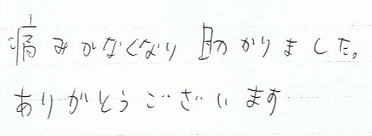 痛みがなくなり助かりました。
ありがとうございます